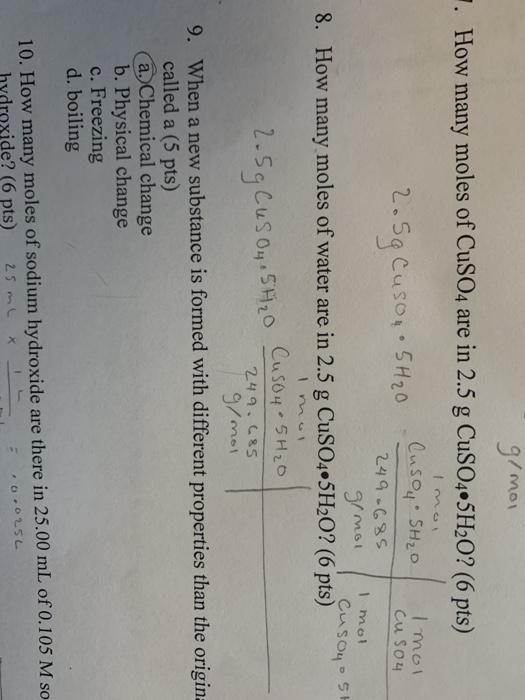 g/mol
. How many moles of CuSO4 are in 2.5 g CuSO4•5H2O? (6 pts)
1 mol
1 mol
2.5g CuSO4•5H2O
CuSO4•5H2O
CuSO4
249.685
g/mol
1 mol
CuSO4•5H
8. How many moles of water are in 2.5 g CuSO4•5H2O? (6 pts)
1 mol
2.5g CuSO4•5H2O
CuSO4•5H2O
249.685
g/mol
9. When a new substance is formed with different properties than the origin
called a (5 pts)
a. Chemical change
b. Physical change
c. Freezing
d. boiling
10. How many moles of sodium hydroxide are there in 25.00 mL of 0.105 M so
hydroxide? (6 pts)
25 mL x 1 L = .025L